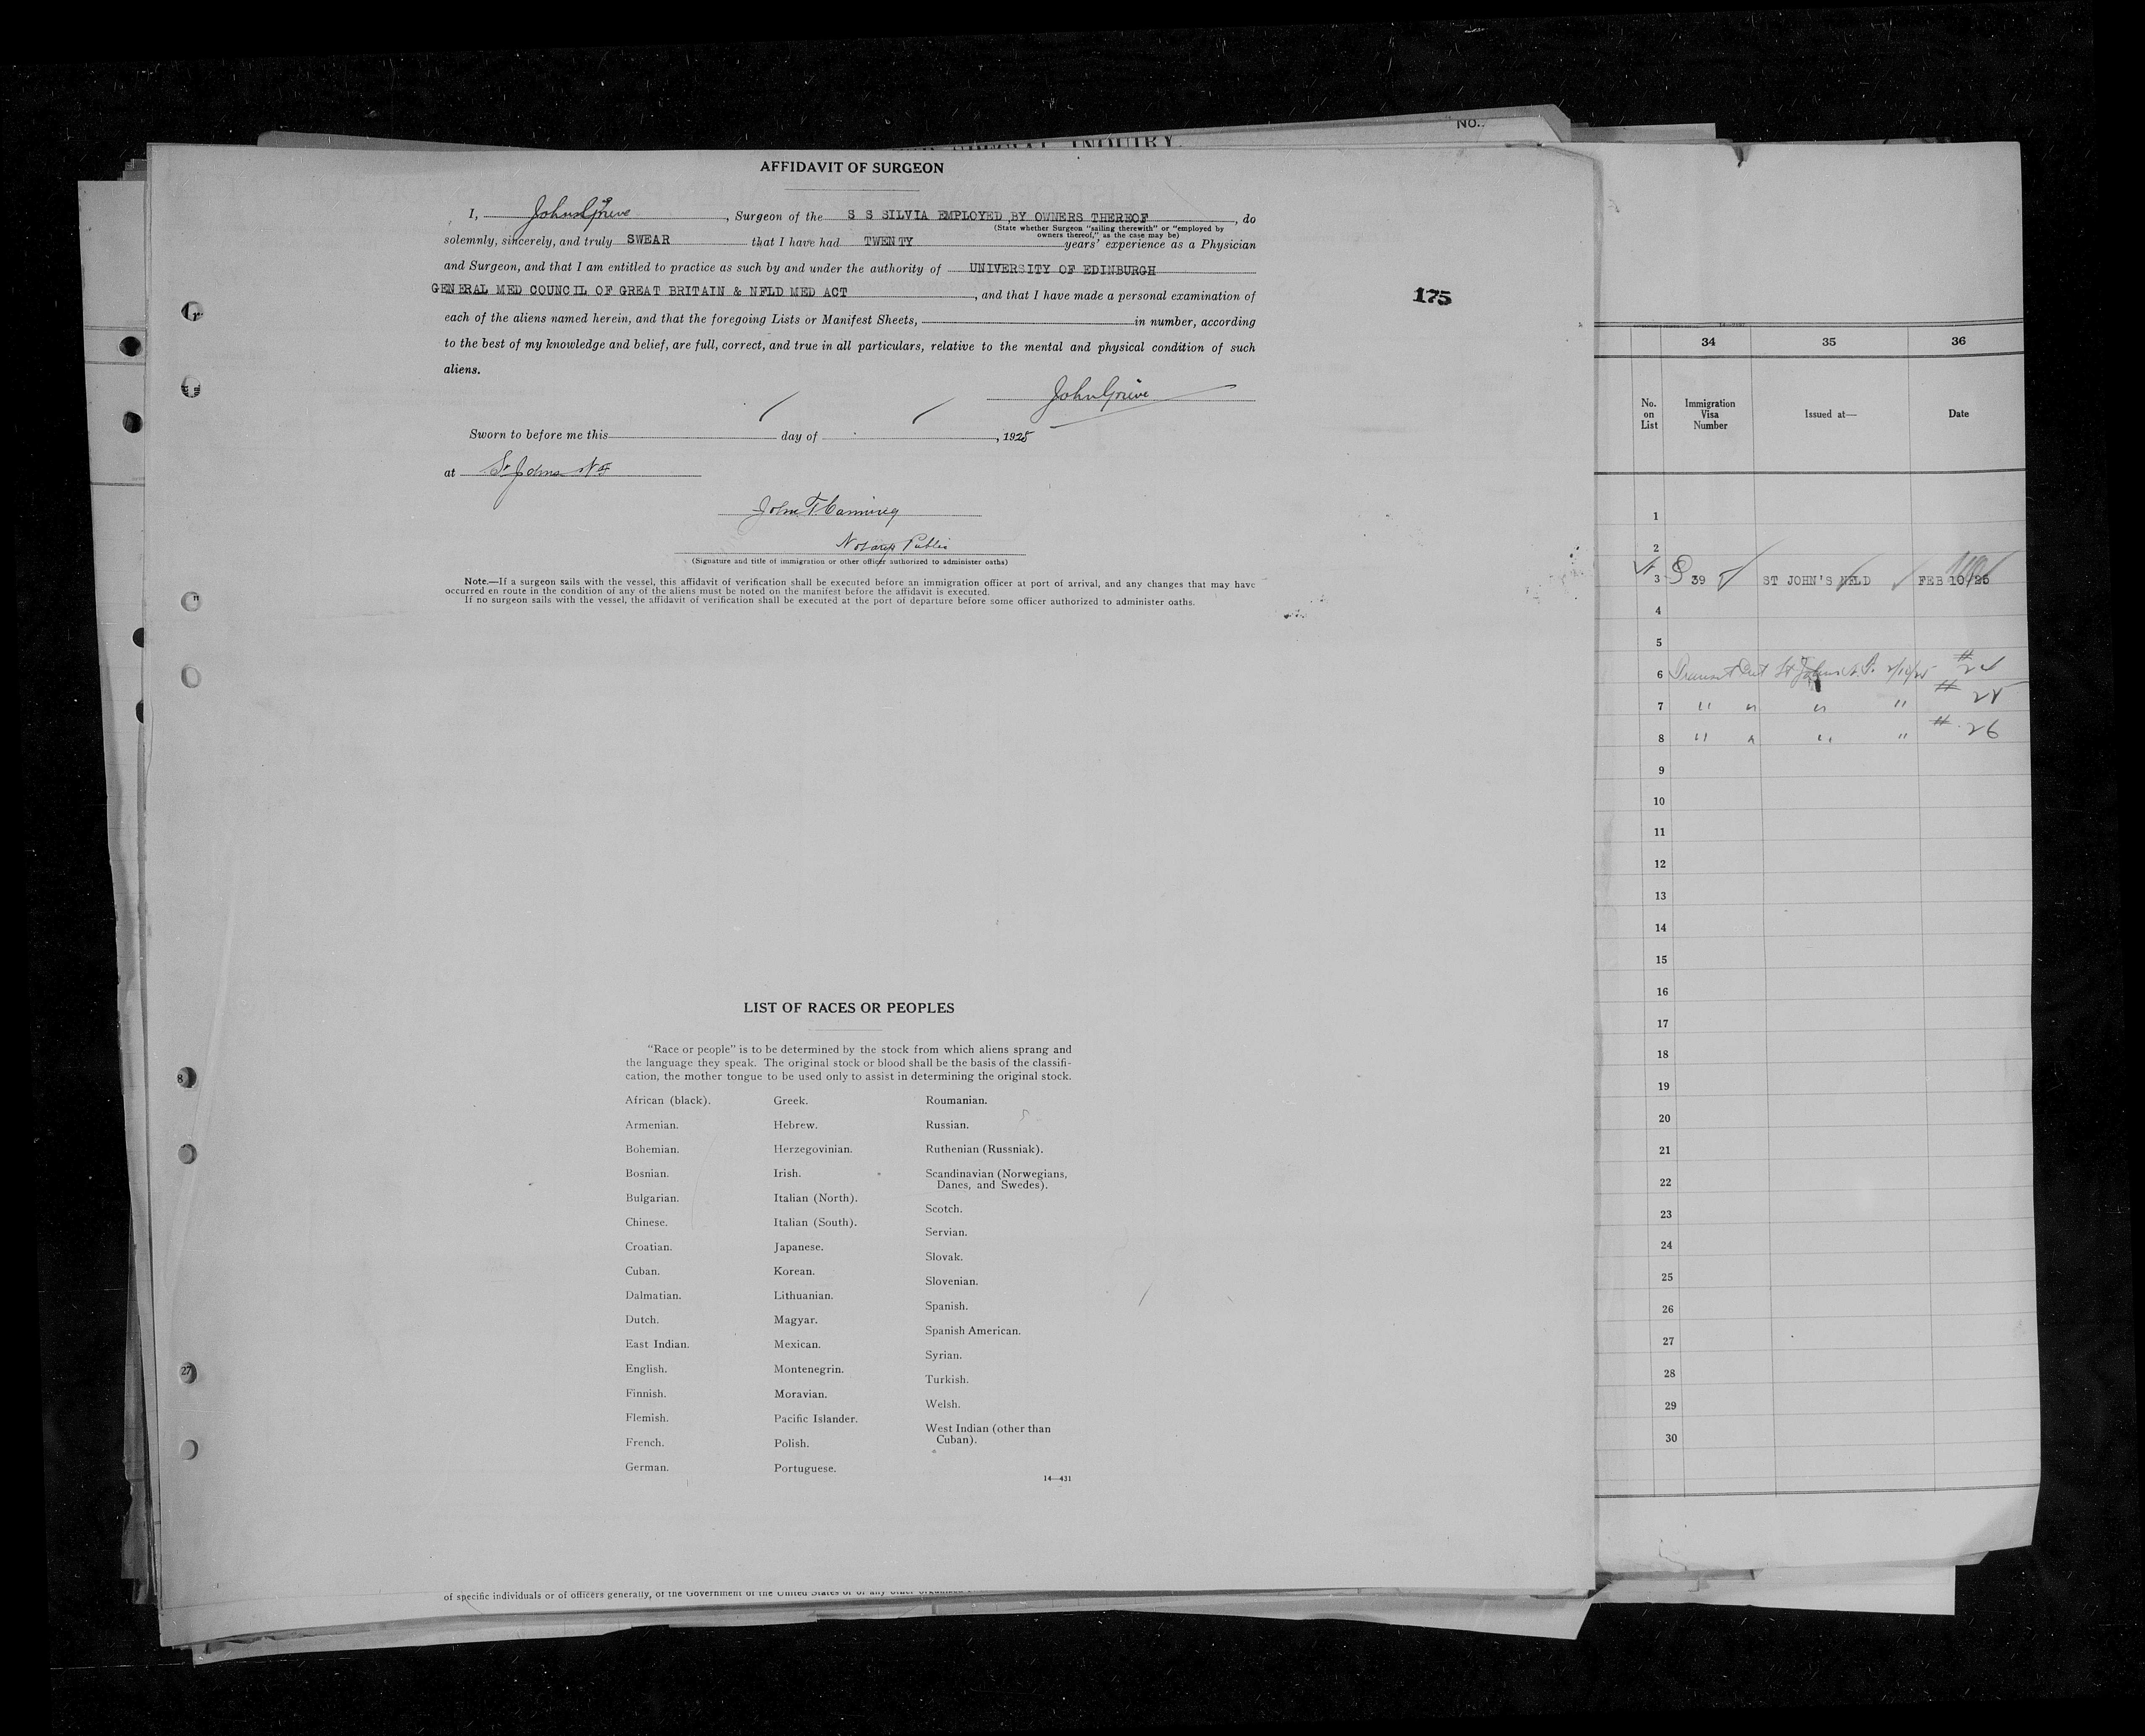 No.
INQUIRY
AFFIDAVIT OF SURGEON
I, John Grieve, Surgeon of the S S SILVIA EMPLOYED BY OWNERS THEREOF, do
(State whether Surgeon "sailing therewith" or "employed by
owners thereof," as the case may be)
solemnly, sincerely, and truly SWEAR that I have had TWENTY years' experience as a Physician
and Surgeon, and that I am entitled to practice as such by and under the authority of UNIVERSITY OF EDINBURGH
GENERAL MED COUNCIL OF GREAT BRITAIN & NFLD MED ACT, and that I have made a personal examination of
175
each of the aliens named herein, and that the foregoing Lists or Manifest Sheets, in number, according
to the best of my knowledge and belief, are full, correct, and true in all particulars, relative to the mental and physical condition of such
aliens.
John Grieve
Sworn to before me this day of , 1925
at St Johns NF
John T. Canning
Notary Public
(Signature and title of immigration or other officer authorized to administer oaths)
Note.—If a surgeon sails with the vessel, this affidavit of verification shall be executed before an immigration officer at port of arrival, and any changes that may have
occurred en route in the condition of any of the aliens must be noted on the manifest before the affidavit is executed.
If no surgeon sails with the vessel, the affidavit of verification shall be executed at the port of departure before some officer authorized to administer oaths.
LIST OF RACES OR PEOPLES
"Race or people" is to be determined by the stock from which aliens sprang and
the language they speak. The original stock or blood shall be the basis of the classifi-
cation, the mother tongue to be used only to assist in determining the original stock.
African (black).
Armenian.
Bohemian.
Bosnian.
Bulgarian.
Chinese.
Croatian.
Cuban.
Dalmatian.
Dutch.
East Indian.
English.
Finnish.
Flemish.
French.
German.
Greek.
Hebrew.
Herzegovinian.
Irish.
Italian (North).
Italian (South).
Japanese.
Korean.
Lithuanian.
Magyar.
Mexican.
Montenegrin.
Moravian.
Pacific Islander.
Polish.
Portuguese.
Roumanian.
Russian.
Ruthenian (Russniak).
Scandinavian (Norwegians,
Danes, and Swedes).
Scotch.
Servian.
Slovak.
Slovenian.
Spanish.
Spanish American.
Syrian.
Turkish.
Welsh.
West Indian (other than
Cuban).
14—431
of specific individuals or of officers generally, of the Government of the United States or of any other
8
27
34 35 36
No.
on
List
Immigration
Visa
Number
Issued at—
Date
1
2
3 39 ST JOHN'S NFLD FEB 10/25
4
5
6 Transit Cert St Johns N.F. 2/10/25 # 24
7 " " " " # 25
8 " " " " # 26
9
10
11
12
13
14
15
16
17
18
19
20
21
22
23
24
25
26
27
28
29
30